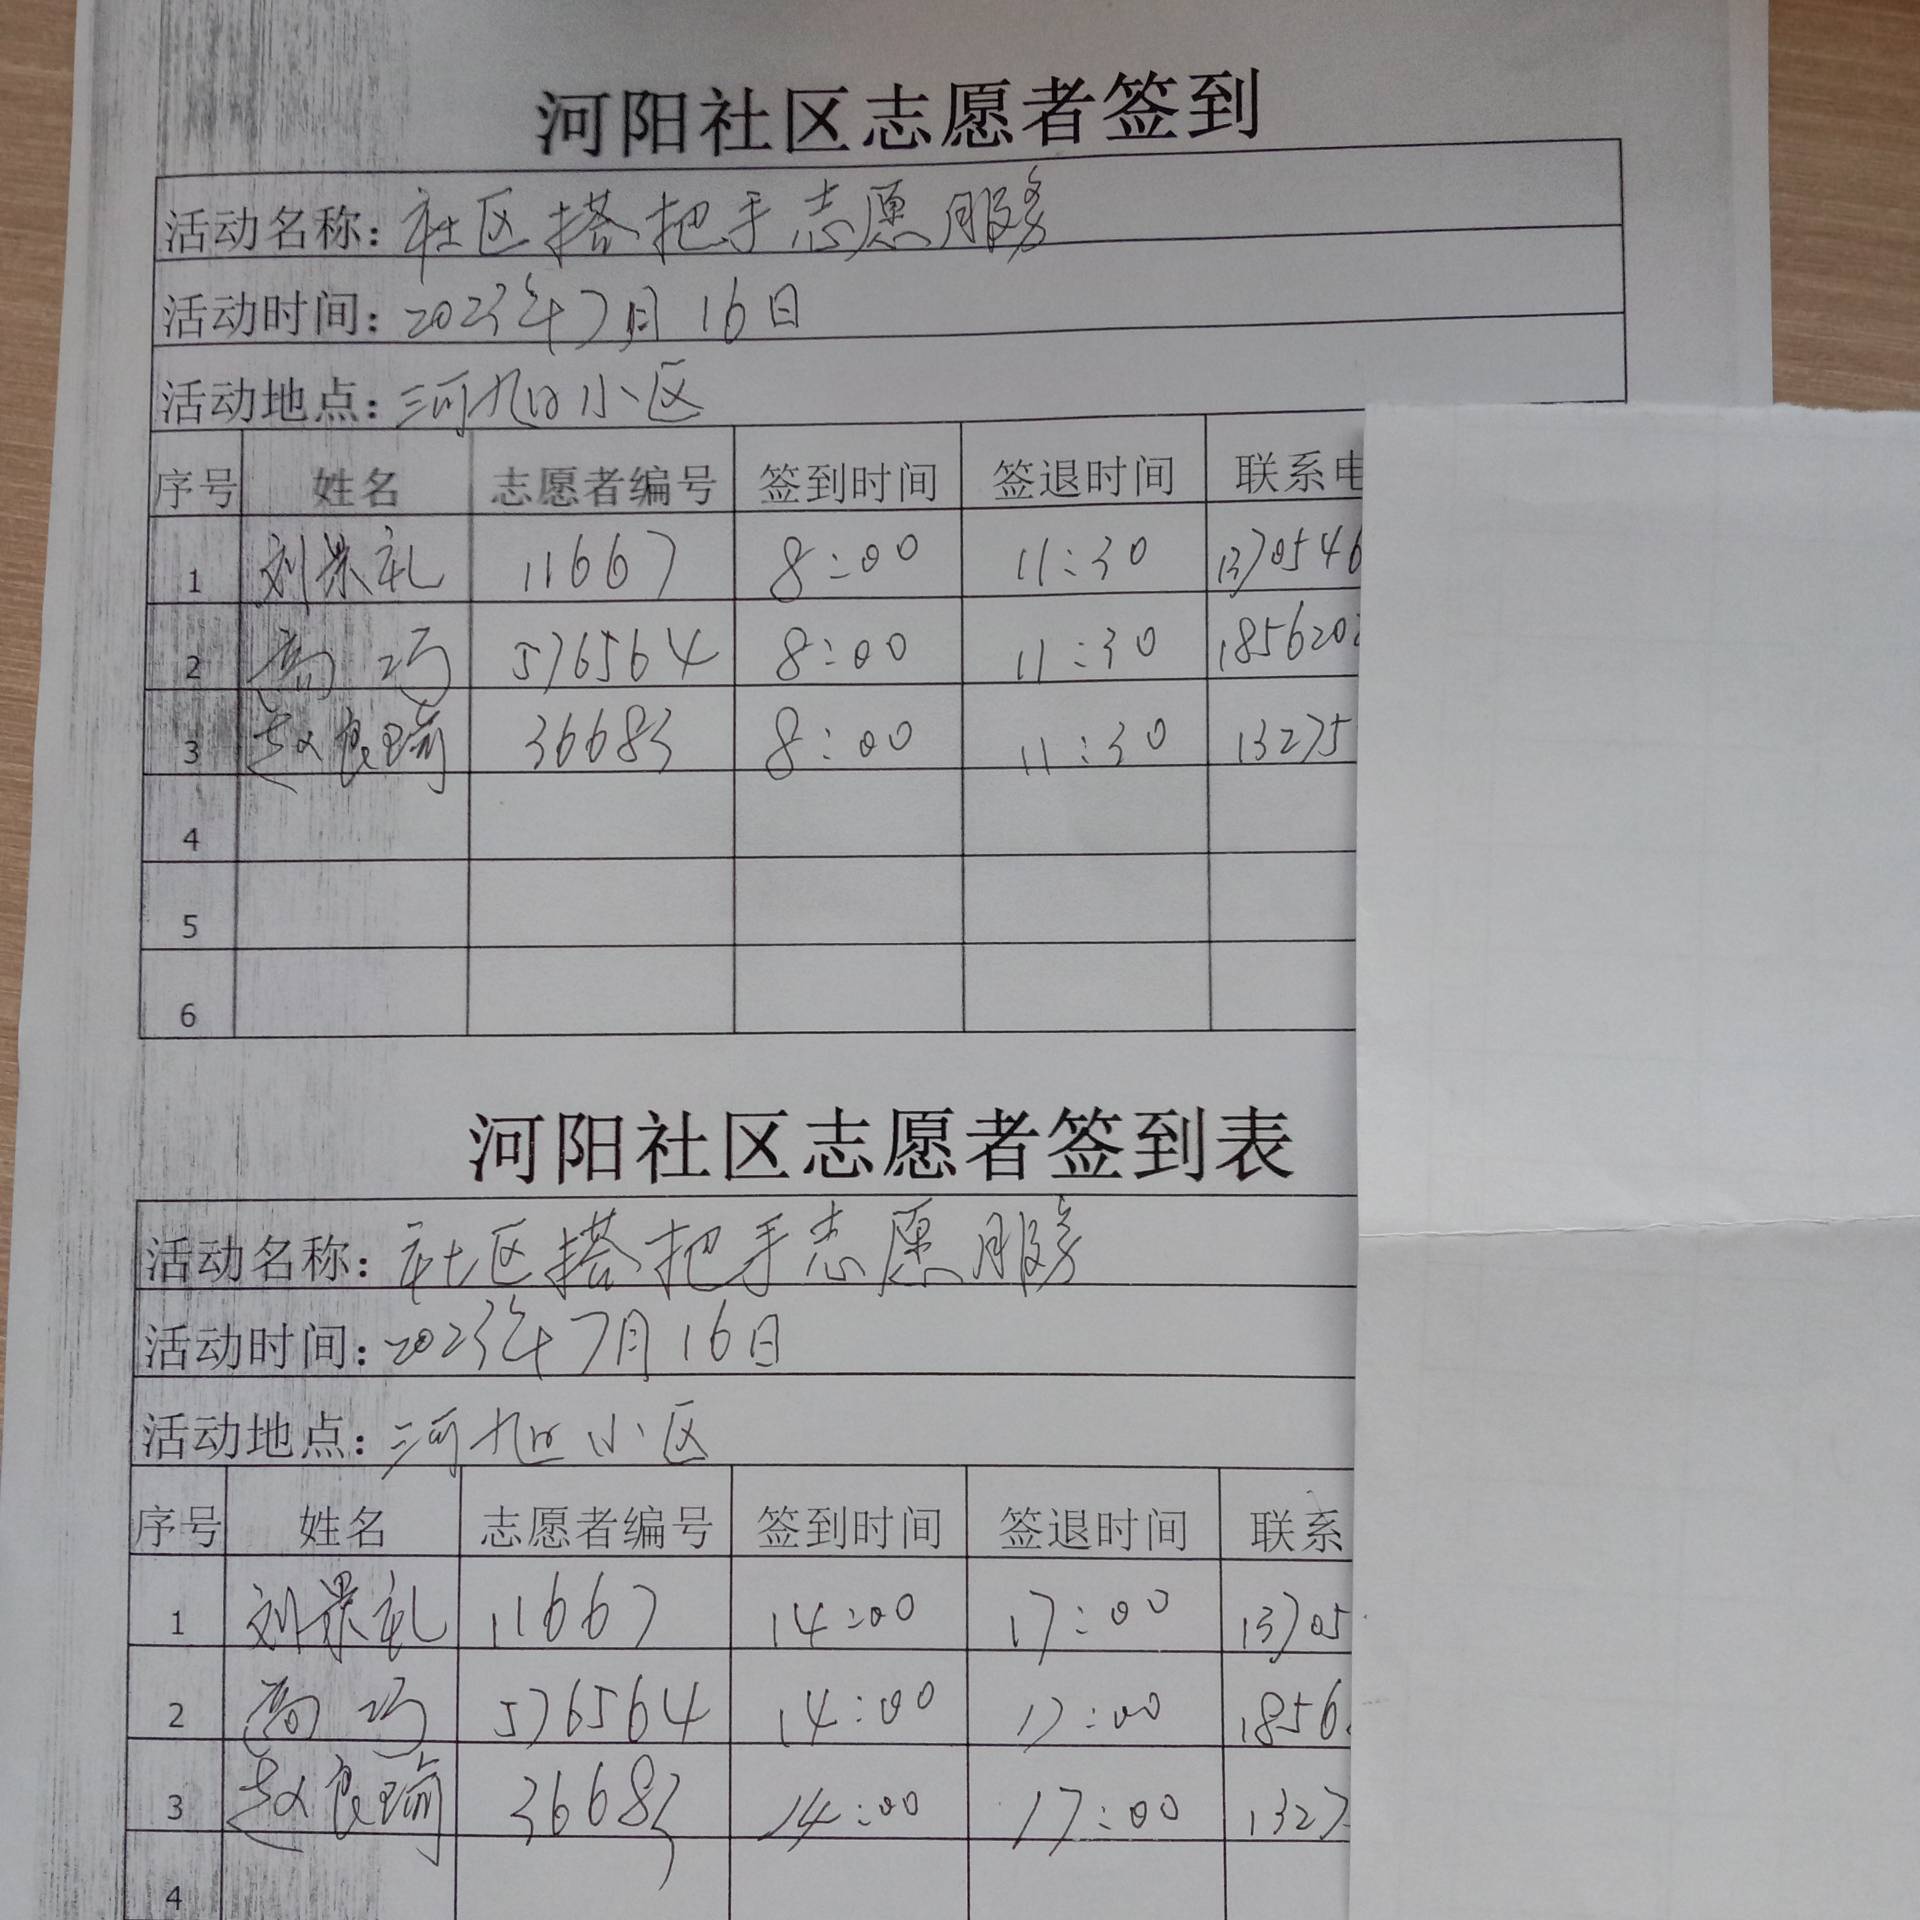 河阳社区志愿者签到
活动名称：社区搭把手志愿服务
活动时间：2023年7月16日
活动地点：小区
序号 姓名 志愿者编号 签到时间 签退时间 联系
1 刘景礼 11667 8:00 11:30 1370546
2 高巧 576564 8:00 11:30 185620
3 赵良瑜 36683 8:00 11:30 13275
4
5
6
河阳社区志愿者签到表
活动名称：社区搭把手志愿服务
活动时间：2023年7月16日
活动地点：小区
序号 姓名 志愿者编号 签到时间 签退时间 联系
1 刘景礼 11667 14:00 17:00 13705
2 高巧 576564 14:00 17:00 1856
3 赵良瑜 36683 14:00 17:00 1327
4